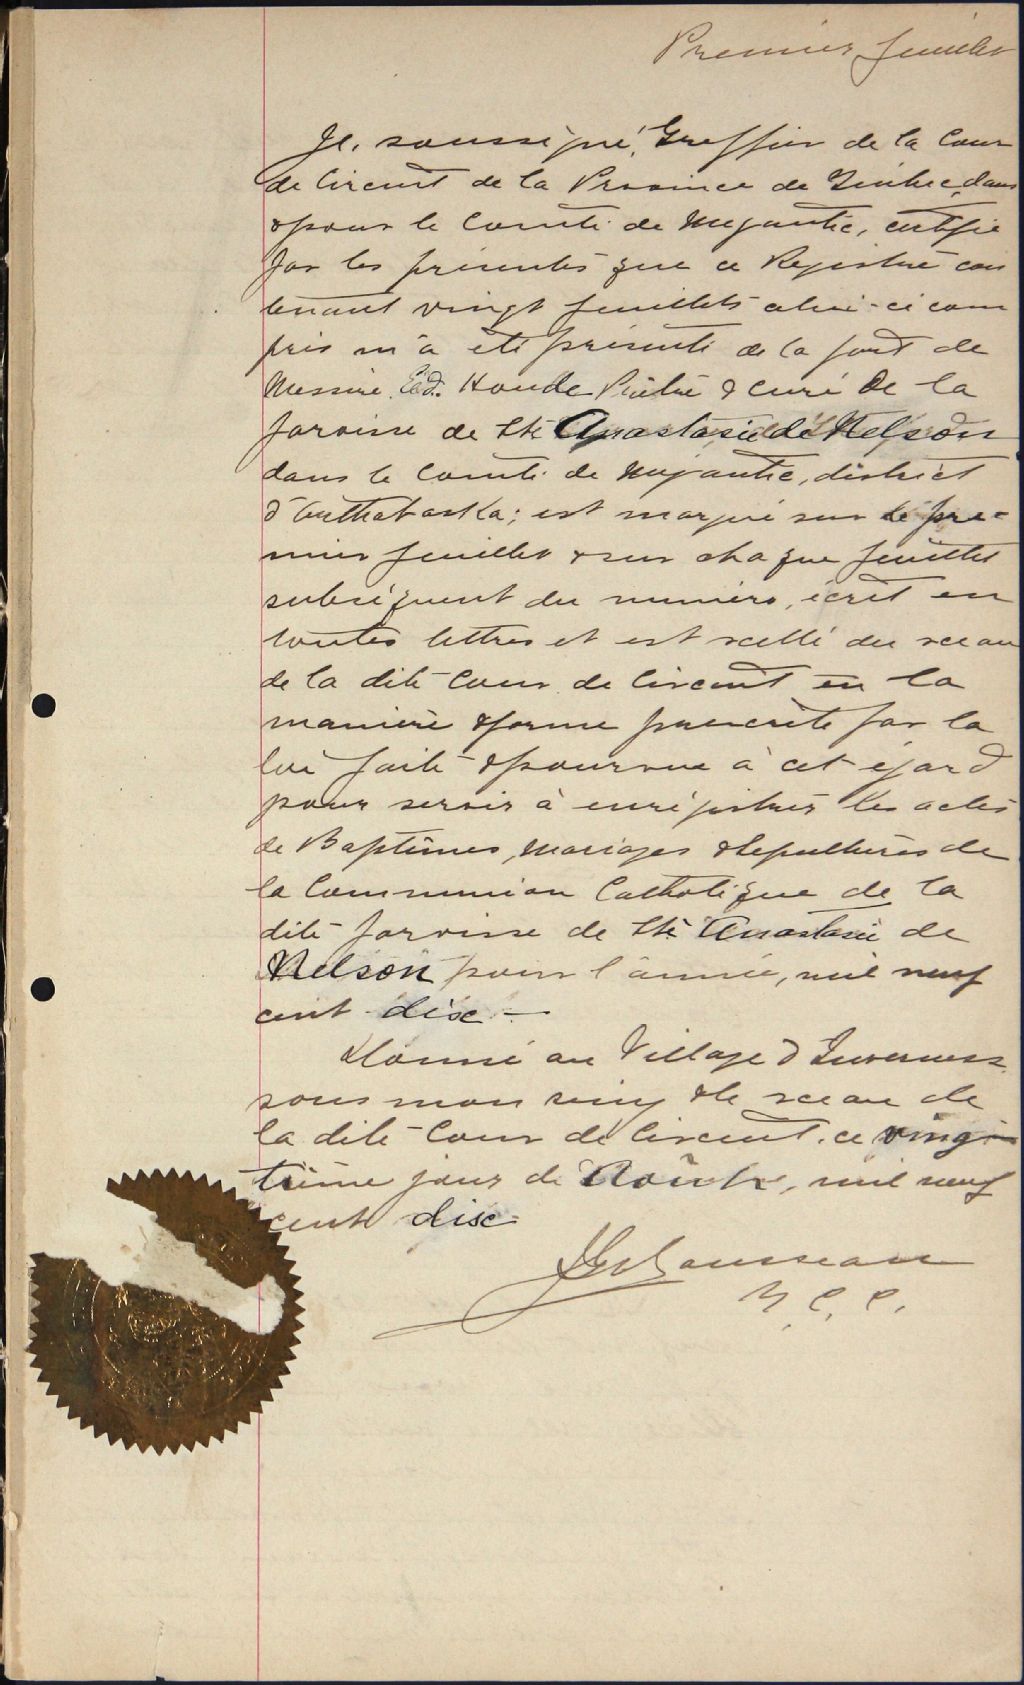 Premier feuillet
Je, soussigné, Greffier de la Cour
de Circuit de la Province de Québec, dans
& pour le Comté de Mégantic, certifie
par les présentes que ce Registre con
tenant vingt feuillets celui-ci com
pris m'a été présenté de la part de
Messire Éd. Houde Prêtre & curé de la
paroisse de Ste Anastasie de Nelson
dans le Comté de Mégantic, district
d'Arthabaska; est marqué sur le pre-
mier feuillet & sur chaque feuillet
subséquent du numéro, écrit en
toutes lettres et est scellé du sceau
de la dite Cour de Circuit en la
manière & forme prescrite par la
loi faite & pourvue à cet égard
pour servir à enrégistrer les actes
de Baptêmes, Mariages & Sépultures de
la Communion Catholique de la
dite paroisse de Ste Anastasie de
Nelson pour l'année, mil neuf
cent dix -
Donné au Village d'Inverness
sous mon seing & le sceau de
la dite Cour de Circuit, ce vingt
ième jour de Août, mil neuf
cent dix
Rousseau
G. C. C.